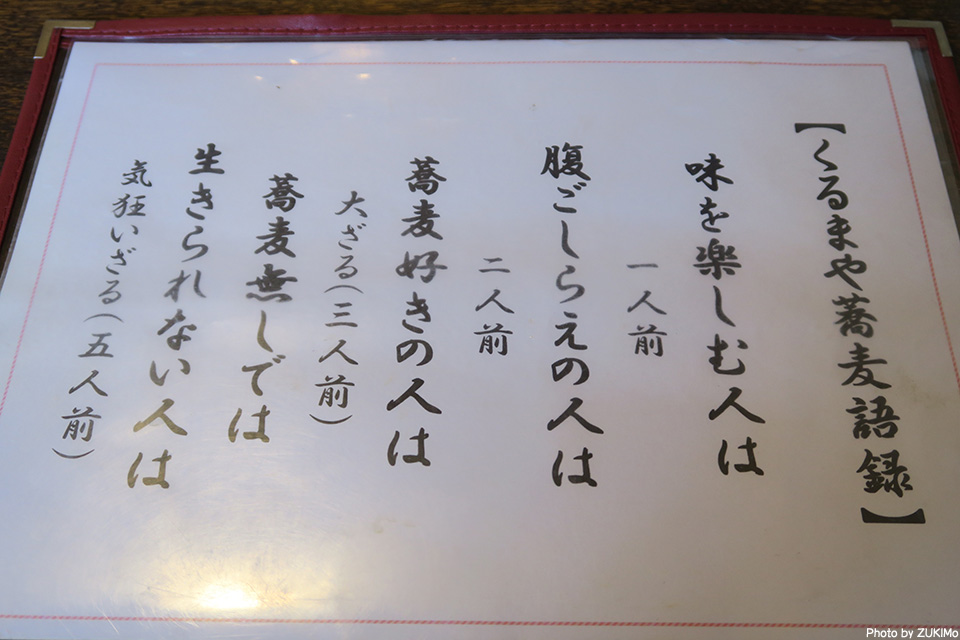 【くるまや蕎麦語録】
味を楽しむ人は
一人前
腹ごしらえの人は
二人前
蕎麦好きの人は
大ざる(三人前)
蕎麦無しでは
生きられない人は
気狂いざる(五人前)
Photo by ZUKIMo